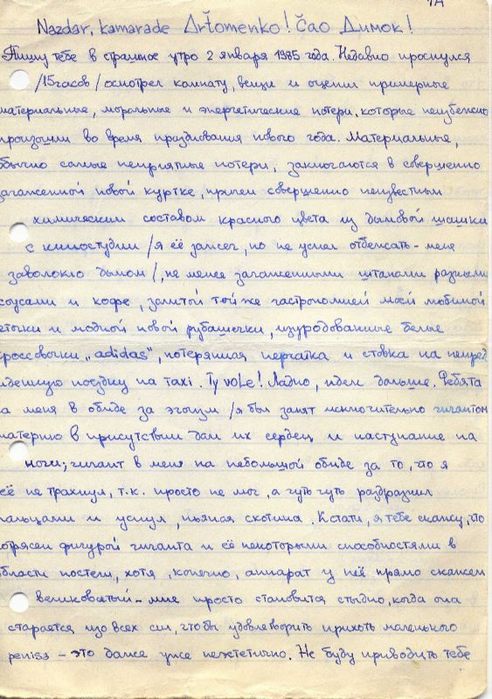 1A
Nazdar, kamarade Artomenko! Čao Димок!
Пишу тебе в страшное утро 2 января 1985 года. Недавно проснулся
/15 часов/ осмотрел комнату, вещи и оценил примерные
материальные, моральные и энергетические потери, которые неизбежно
произошли во время празднования нового года. Материальные,
обычно самые неприятные потери, заключаются в совершенно
загаженной новой куртке, причем совершенно неизвестным
химическим составом красного цвета из дымовой шашки
с киностудии /я её зажег, но не успел отбежать - меня
заволокло дымом/, не менее загаженными штанами разными
соусами и кофе, залитой той же гастрономией моей любимой
и модной новой рубашечки, изуродованные белые
кроссовочки „adidas", потерянная перчатка и ставка на
поездку на taxi. Ty vole! Ладно, идем дальше. Ребята
на меня в обиде за эгоизм /я был занят исключительно гигантом
материю в присутствии дам их сердец и наступание на
ноги; гигант в меня на небольшой обиде за то, что я
её не трахнул, т.к. просто не мог, а чуть чуть раздразнил
пальцами и уснул, пьяная скотина. Кстати, я тебе скажу, что
потрясен фигурой гиганта и её некоторыми способностями в
области постели, хотя, конечно, аппарат у неё прямо скажем
великоватый - мне просто становится стыдно, когда она
старается изо всех сил, чтобы удовлетворить прихоть маленького
peniss - это даже уже неэстетично. Не буду приводить тебе